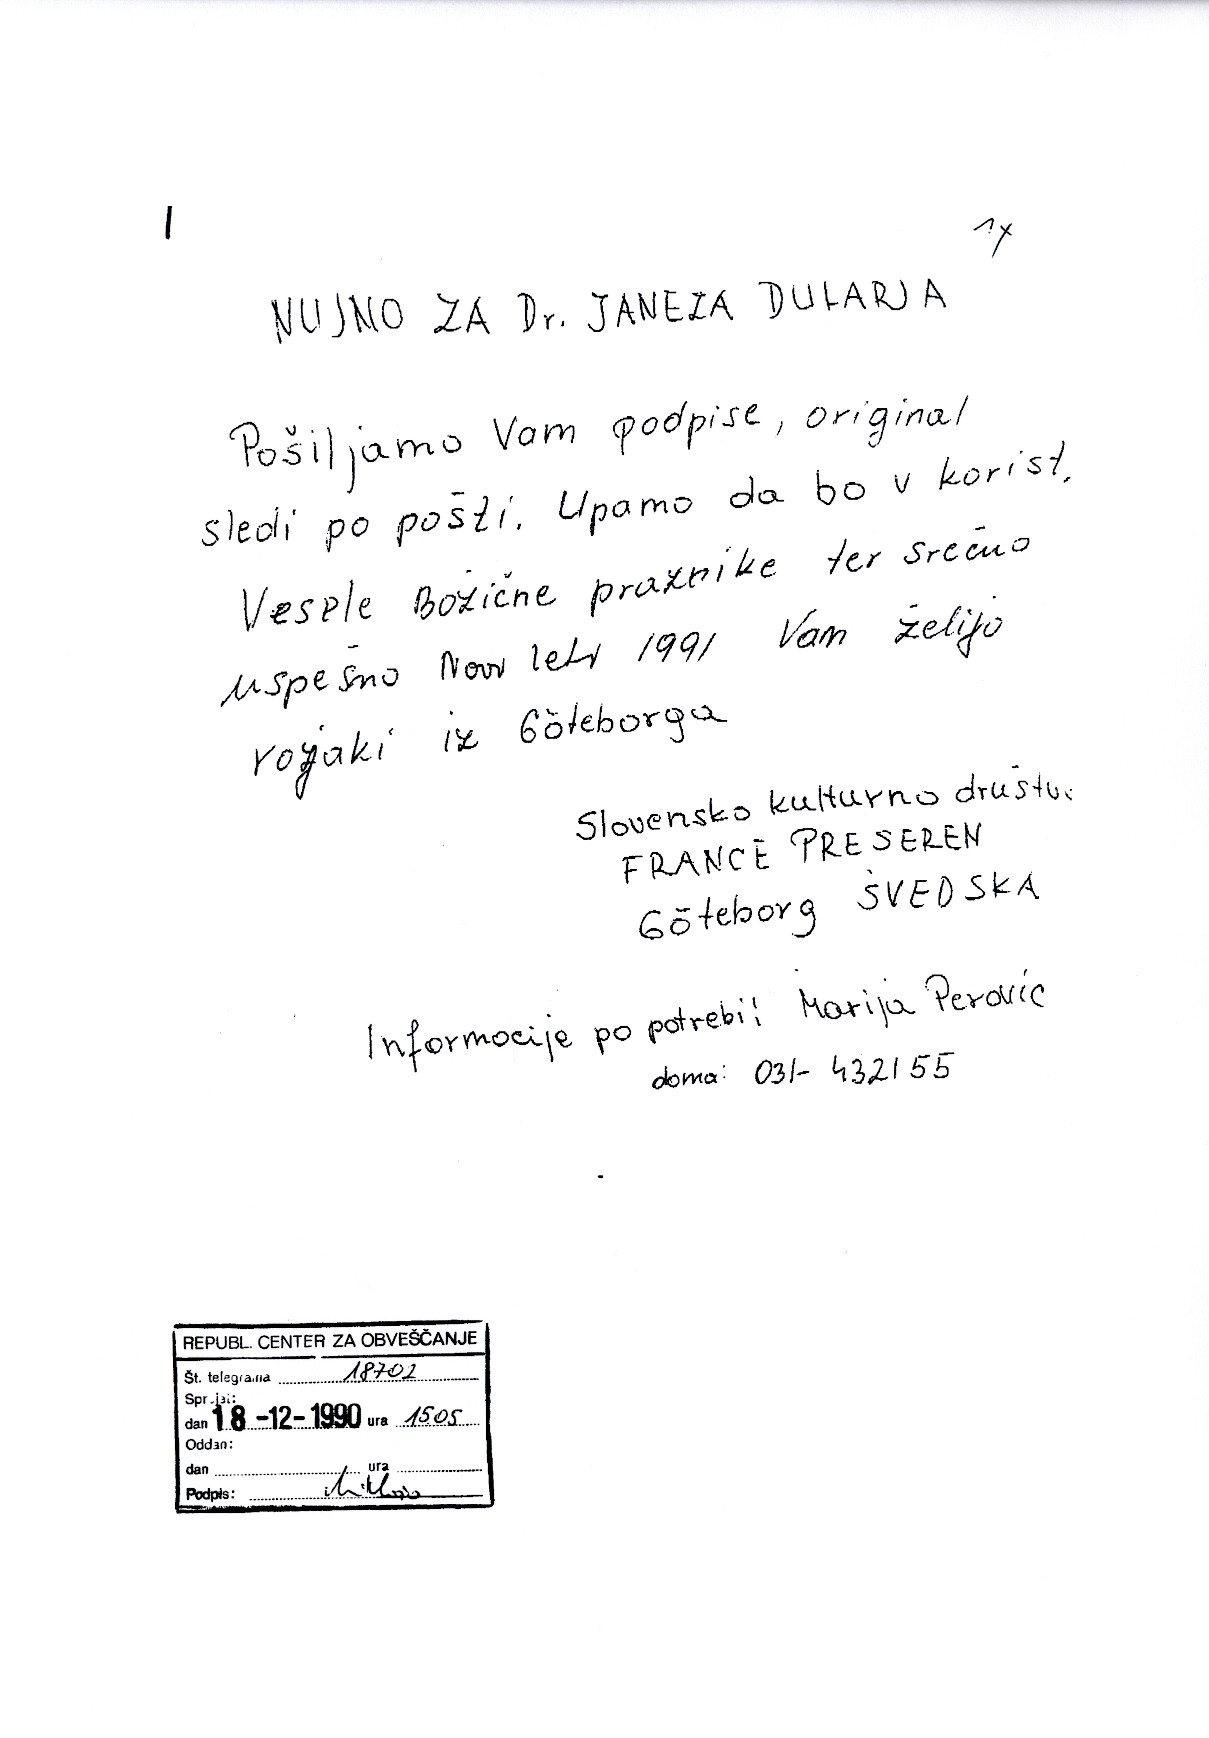 1x
NUJNO ZA Dr. JANEZA DULARJA
Pošiljamo Vam podpise, original
sledi po pošti. Upamo da bo v korist.
Vesele Božične praznike ter srečno
uspešno Novo leto 1991 Vam želijo
rojaki iz Göteborga
Slovensko kulturno društvo
FRANCE PRESEREN
Göteborg ŠVEDSKA
Informacije po potrebi! Marija Perović
doma: 031-432155
REPUBL. CENTER ZA OBVEŠČANJE
Št. telegrama 18702
Sprejel:
dan 18-12-1990 ura 1505
Oddan:
dan ura
Podpis: